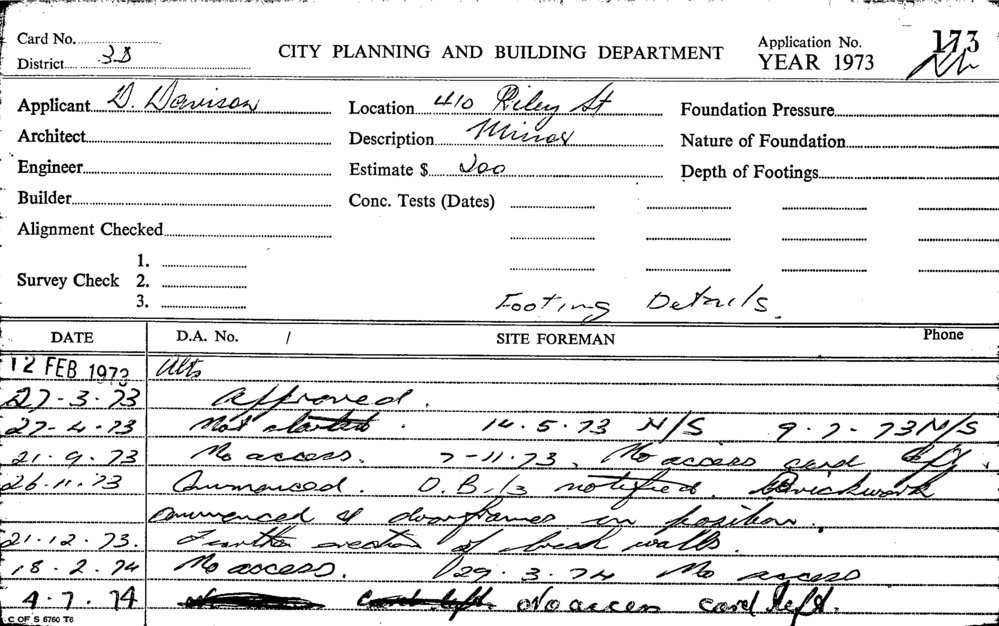 Card No.
CITY PLANNING AND BUILDING DEPARTMENT
Application No. 173
District 3B
YEAR 1973
Applicant D. Davison
Location 410 Riley St
Foundation Pressure
Architect
Description Minor
Nature of Foundation
Engineer
Estimate $ 200
Depth of Footings
Builder
Conc. Tests (Dates)
Alignment Checked
Survey Check 1.
2.
3.
Footing Details.
DATE D.A. No. / SITE FOREMAN Phone
12 FEB 1973 Alts
27-3-73 Approved.
27-4-73 Not started. 14.5.73 N/S 9-7-73 N/S
21.9.73 No access. 7-11-73. No access card
26.11.73 Commenced. D.B.I's notified. Brickwork
commenced & doorframes in position.
21.12.73. Further erection of brick walls.
18.2.74 No access. 29.3.74 No access
4.7.74 No access card left.
C OF S 6760 T6